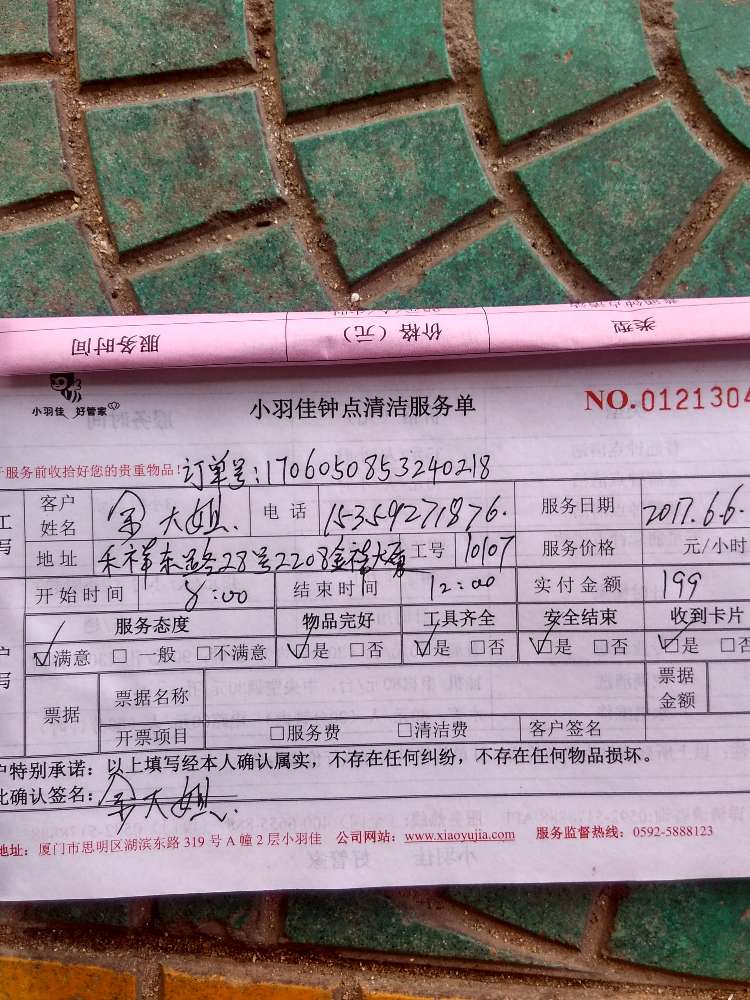 类型 价格（元） 服务时间
小羽佳 好管家
小羽佳钟点清洁服务单
NO.0121304
服务前收拾好您的贵重物品！订单号：1706050853240218
客户姓名 余大姐. 电话 15359271876. 服务日期 2017.6.6.
地址 禾祥东路28号2208金祥大厦 工号 10107 服务价格 元/小时
开始时间 8:00 结束时间 12:00 实付金额 199
服务态度 物品完好 工具齐全 安全结束 收到卡片
☑满意 □一般 □不满意 ☑是 □否 ☑是 □否 ☑是 □否 ☑是 □否
票据 票据名称 票据金额
开票项目 □服务费 □清洁费 客户签名
户特别承诺：以上填写经本人确认属实，不存在任何纠纷，不存在任何物品损坏。
此确认签名：余大姐.
地址：厦门市思明区湖滨东路 319 号 A 幢 2 层小羽佳 公司网站：www.xiaoyujia.com 服务监督热线：0592-5888123